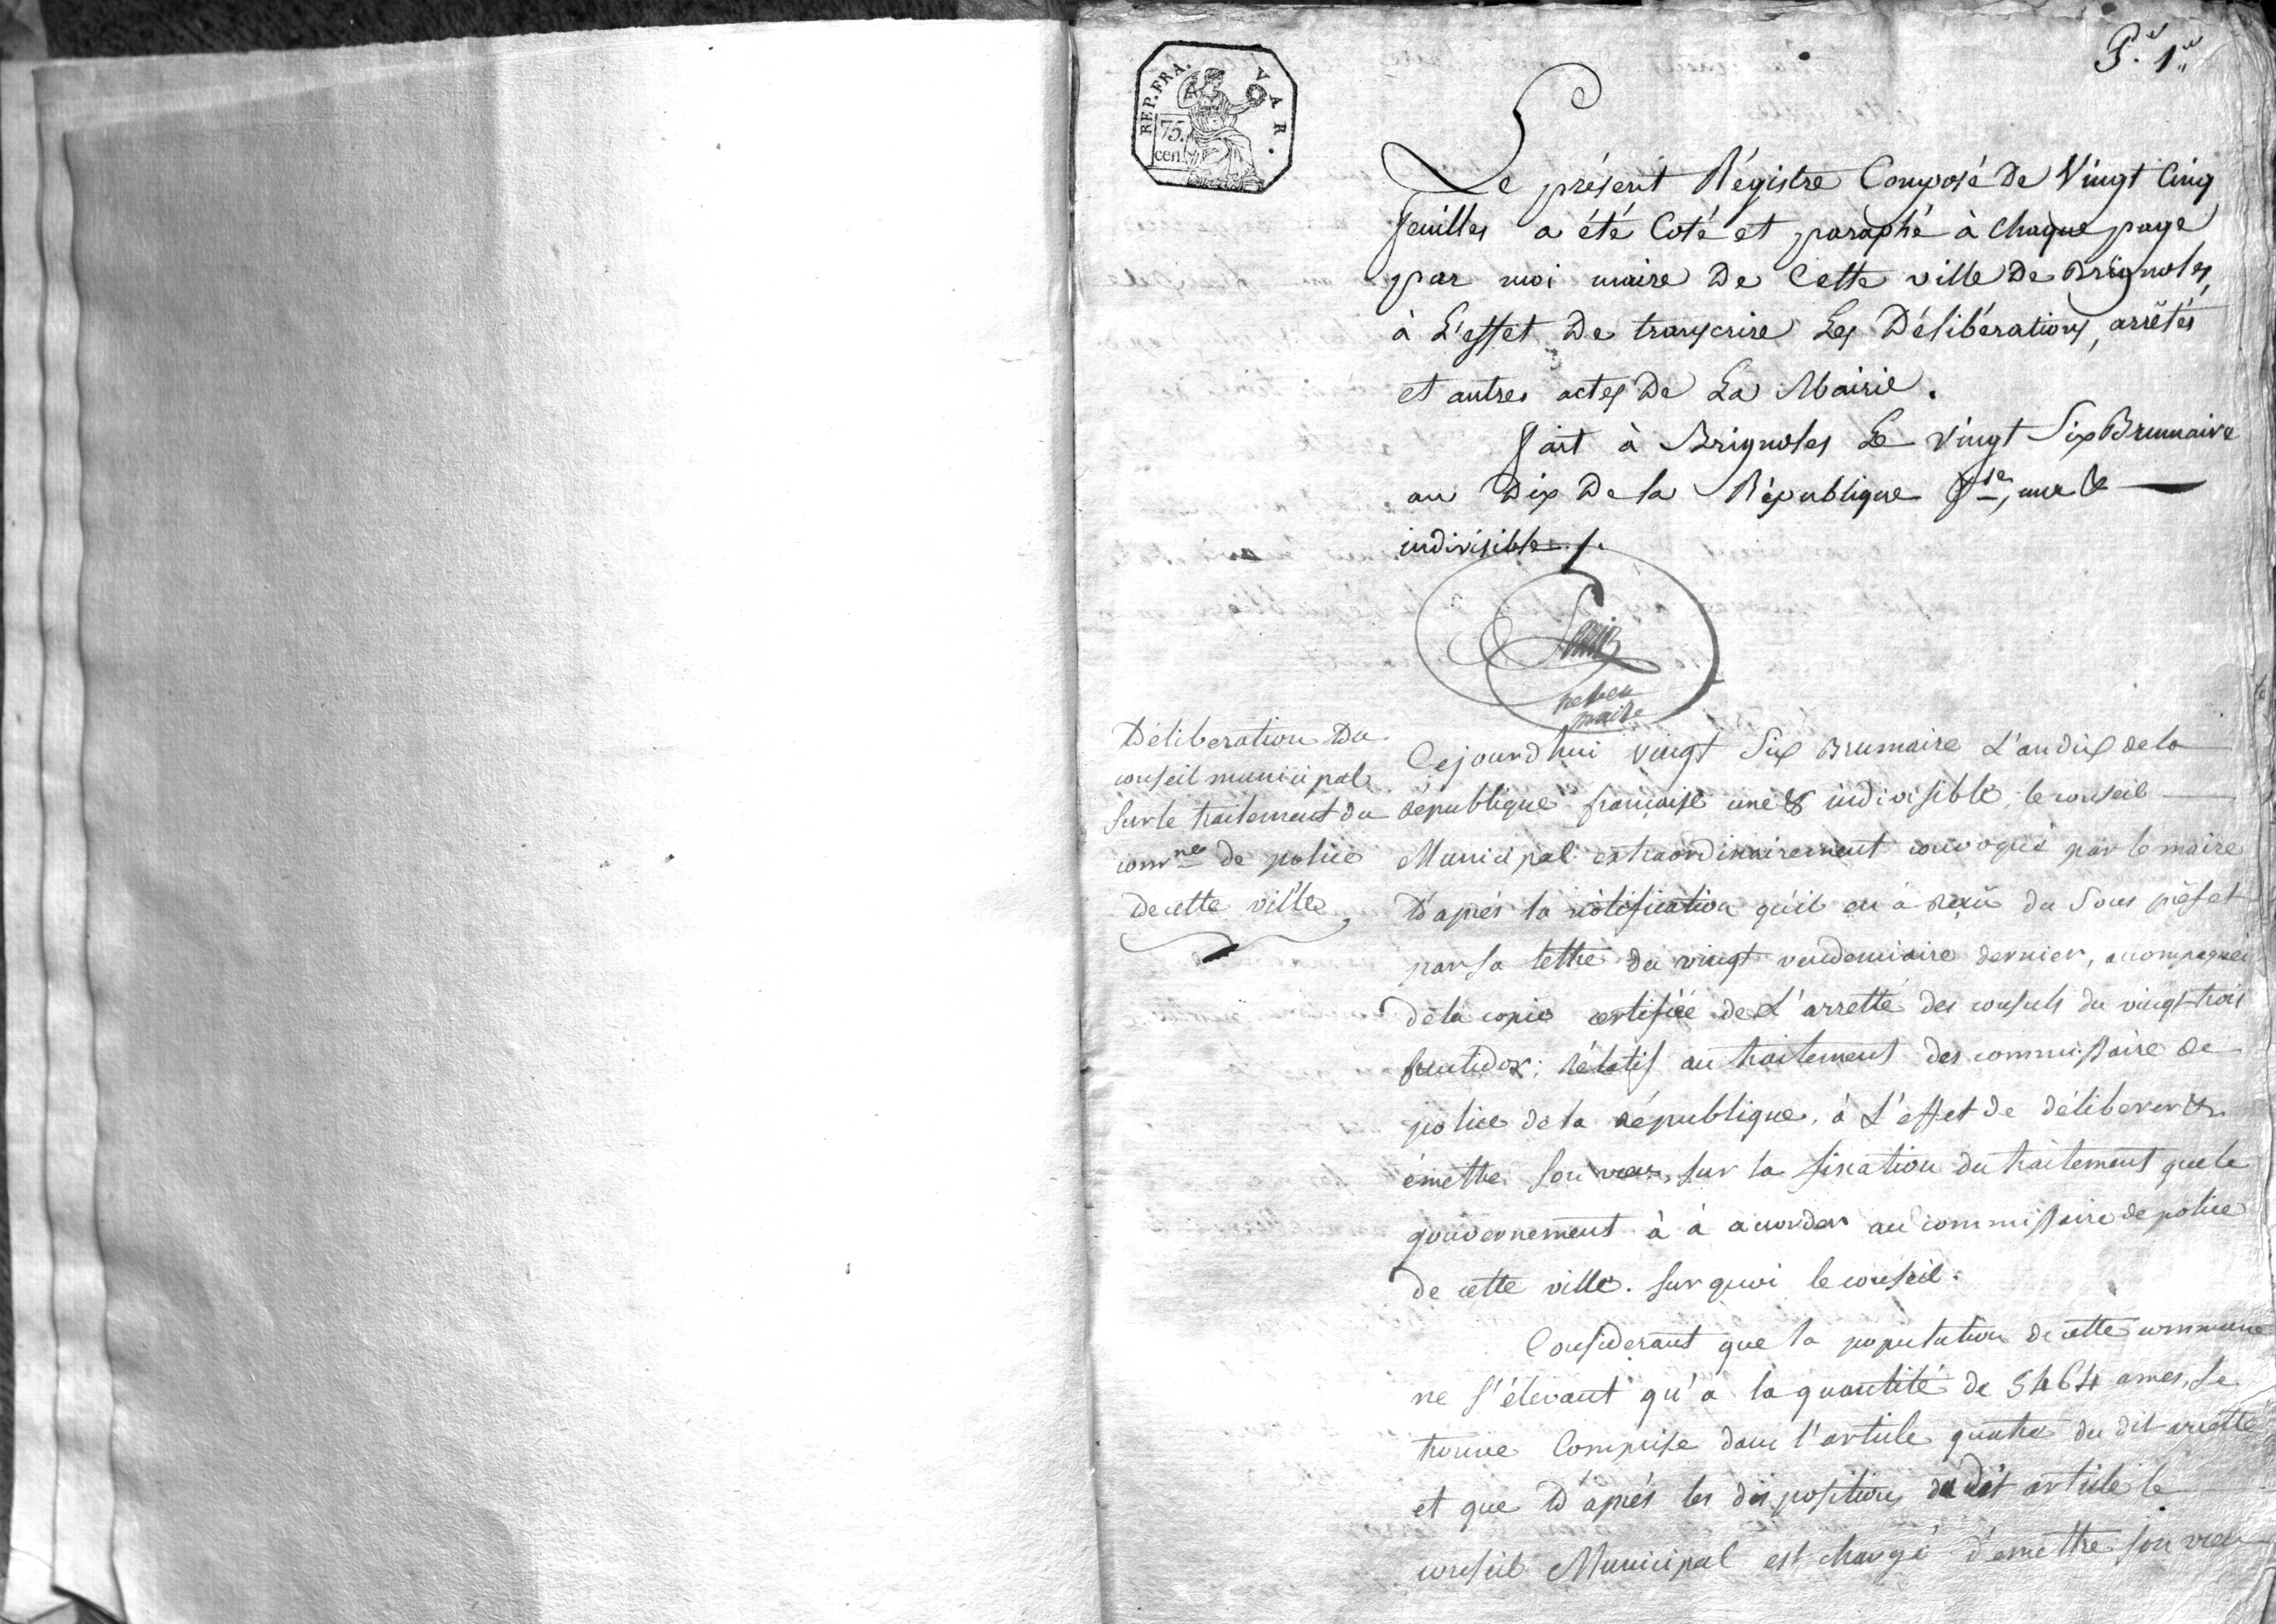 P.re 1.re
REP. FRA. VAR.
75.
cen.
Le présent Régistre Composé de Vingt Cinq
feuilles a été Coté et paraphé à Chaque page
par moi maire de Cette ville de Brignoles,
à L'effet de transcrire Les Délibérations, arrêtés
et autres actes de La Mairie.
fait à Brignoles Le vingt Six Brumaire
an Dix De la République f.se, une &
indivisible.
maire
Déliberation Du
conseil municipal
sur le traitement du
comm.re de police
de cette ville
Cejourd'hui vingt Six Brumaire L'an dix de la
république française une & indivisible, le conseil
Municipal extraordinairement convoqué par le maire
D'aprés la nótification qu'il en à reçü du Sous préfet
par sa lettre du vingt vendemiaire dernier, acompagnée
de la copie certifiée de L'arretté des consuls du vingt-trois
fructidor; rélatif au traitement des commissaire de
police de la république, à L'effet de déliberer &
émettre son vœu, sur la fixation du traitement que le
gouvernement à à accorder au commissaire de police
de cette ville. sur quoi le conseil.
Considerant que la population de cette commune
ne s'élevant qu'a la quantité de 5464 ames, se
trouve Comprise dans l'article quatre du dit arretté
et que D'aprés les dispositions du dit article le
conseil Municipal est chargé d'émettre son vœu